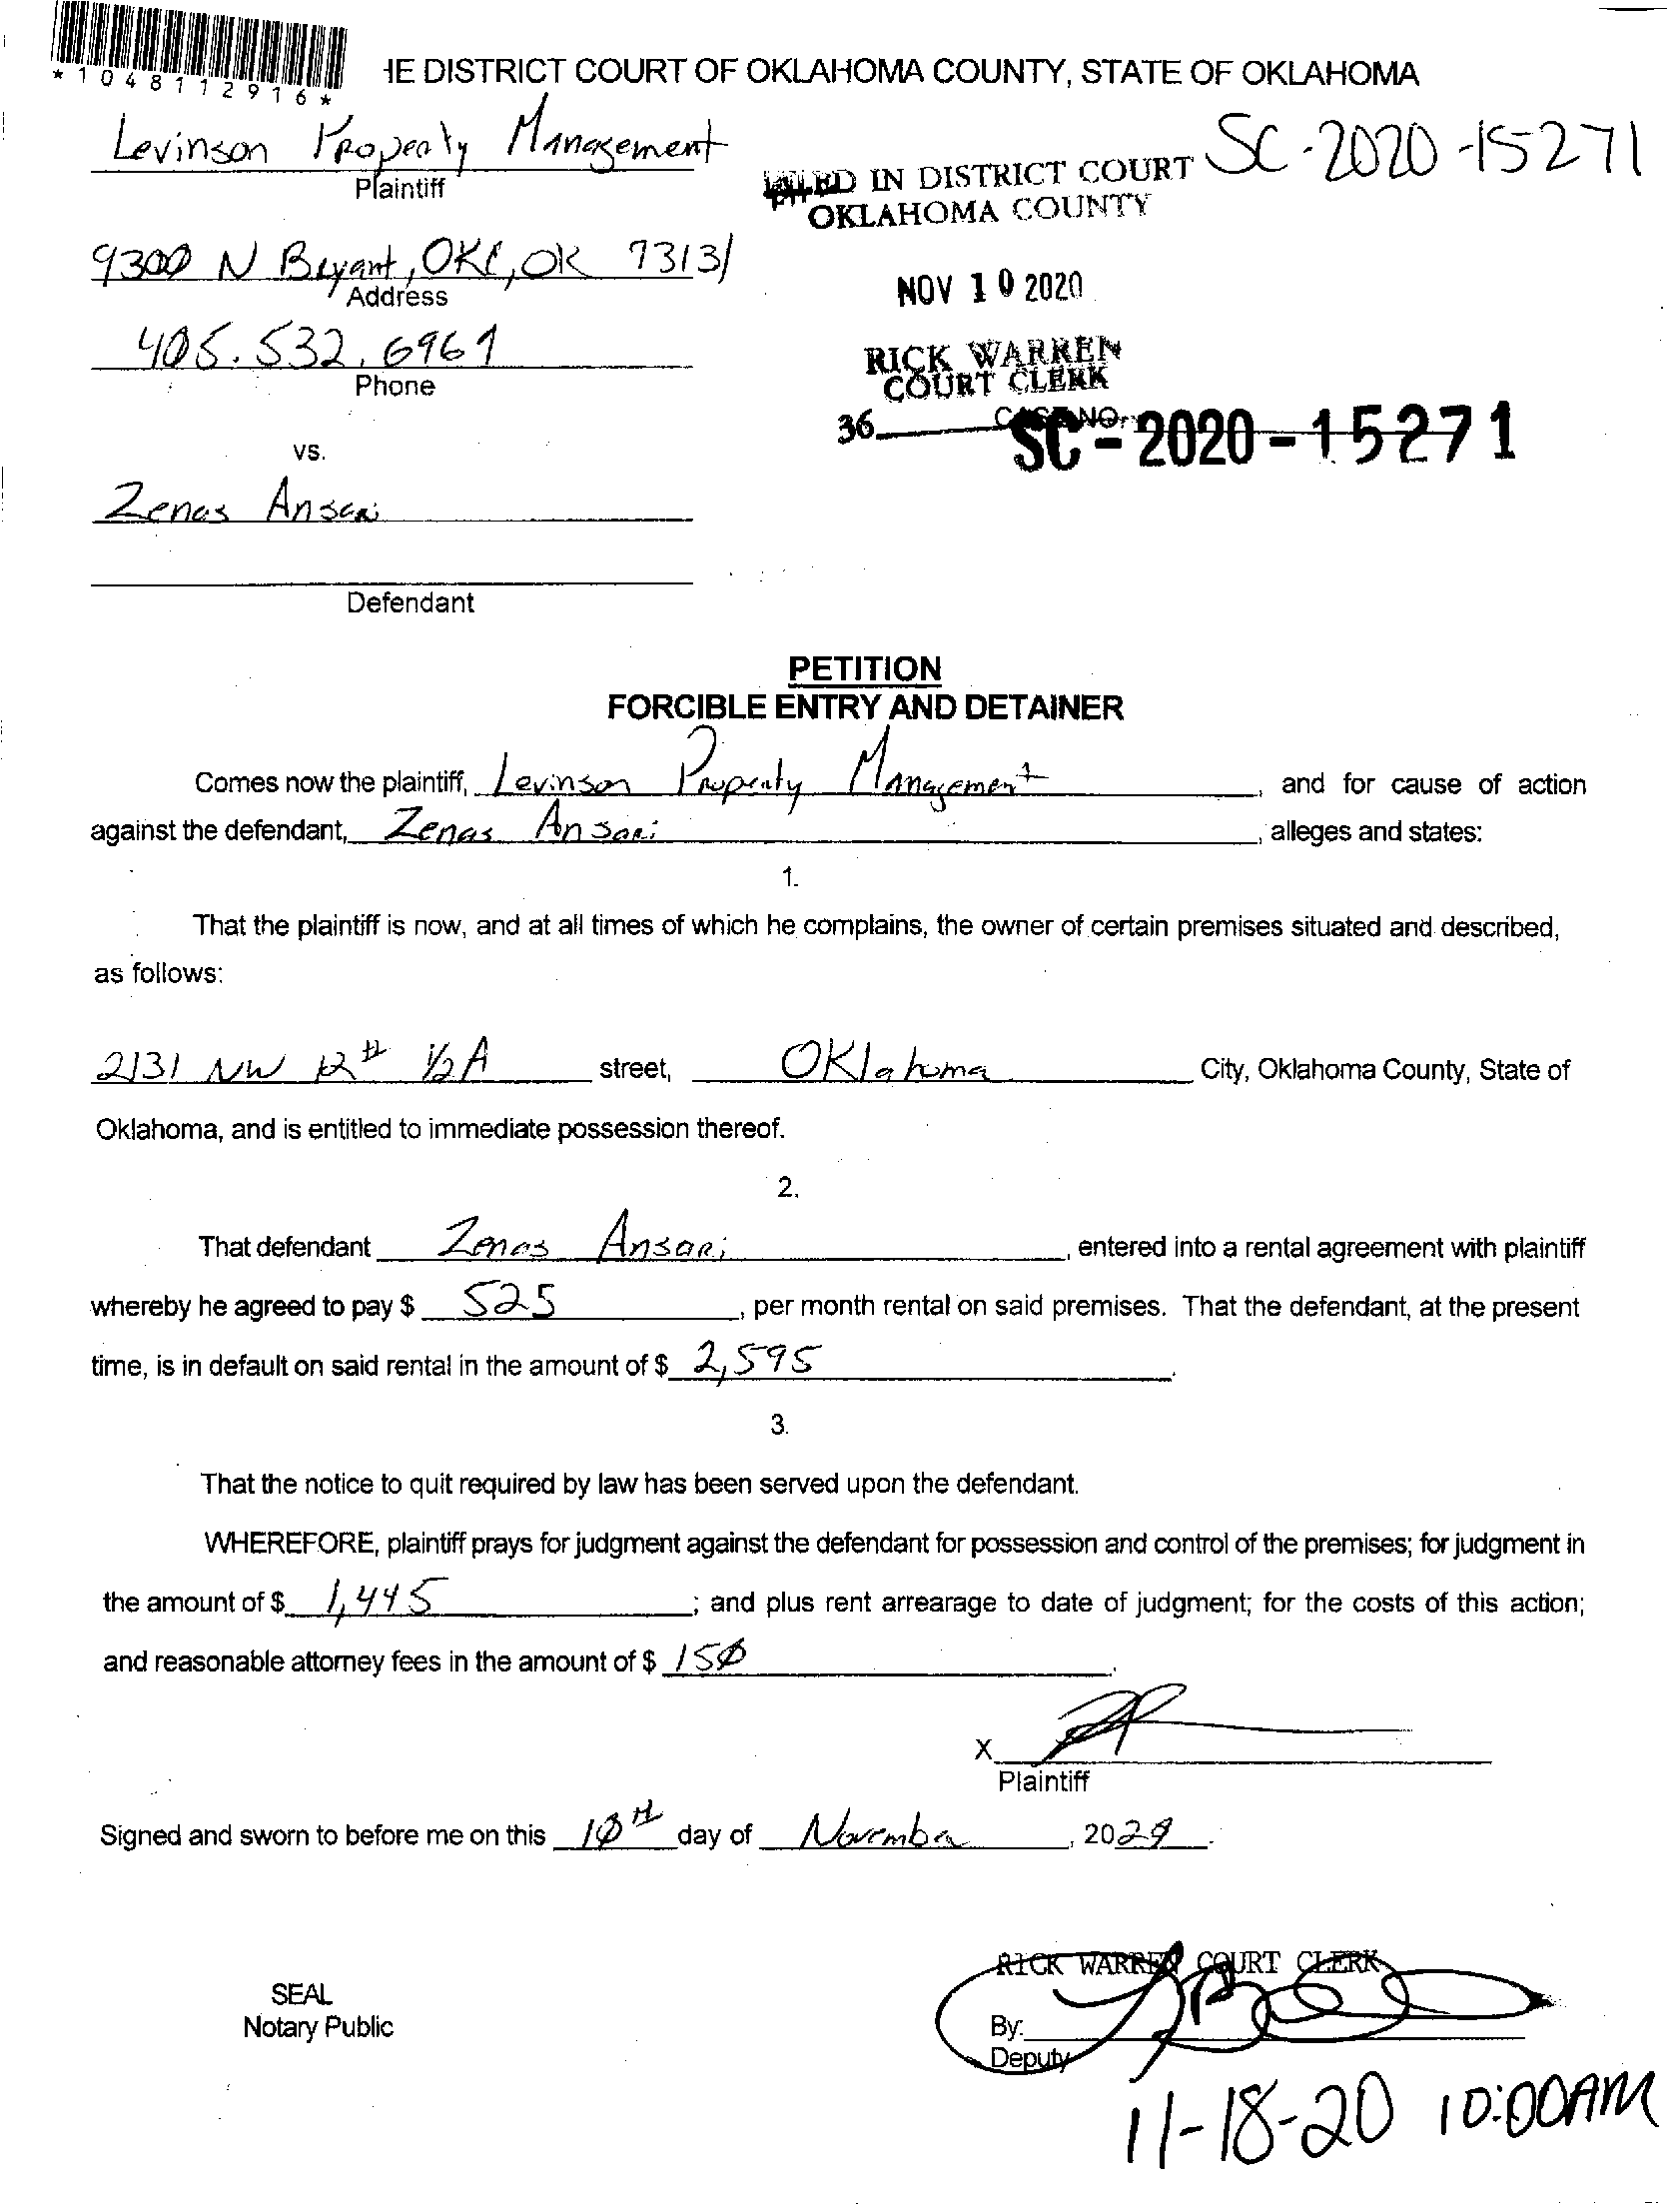 *1048112916*
HE DISTRICT COURT OF OKLAHOMA COUNTY, STATE OF OKLAHOMA
Levinson Property Management
Plaintiff
SC-2020-15271
FILED IN DISTRICT COURT
OKLAHOMA COUNTY
9300 N Bryant, OKC, OK 73131
Address
NOV 10 2020
405.532.6961
Phone
RICK WARREN
COURT CLERK
36
CASE NO.
SC-2020-15271
vs.
Zenas Ansari
Defendant
PETITION
FORCIBLE ENTRY AND DETAINER
Comes now the plaintiff, Levinson Property Management, and for cause of action
against the defendant, Zenas Ansari, alleges and states:
1.
That the plaintiff is now, and at all times of which he complains, the owner of certain premises situated and described,
as follows:
2131 NW 12th 1/2 A street, Oklahoma City, Oklahoma County, State of
Oklahoma, and is entitled to immediate possession thereof.
2.
That defendant Zenas Ansari, entered into a rental agreement with plaintiff
whereby he agreed to pay $ 525, per month rental on said premises. That the defendant, at the present
time, is in default on said rental in the amount of $ 2,595.
3.
That the notice to quit required by law has been served upon the defendant.
WHEREFORE, plaintiff prays for judgment against the defendant for possession and control of the premises; for judgment in
the amount of $ 1,445; and plus rent arrearage to date of judgment; for the costs of this action;
and reasonable attorney fees in the amount of $ 150.
X
Plaintiff
Signed and sworn to before me on this 10th day of November, 2020.
RICK WARREN COURT CLERK
SEAL
Notary Public
By:
Deputy
11-18-20 10:00AM